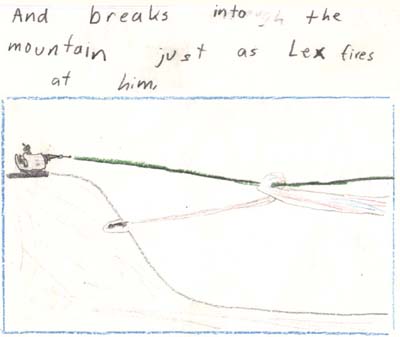 And breaks into the
mountain just as Lex fires
at him.